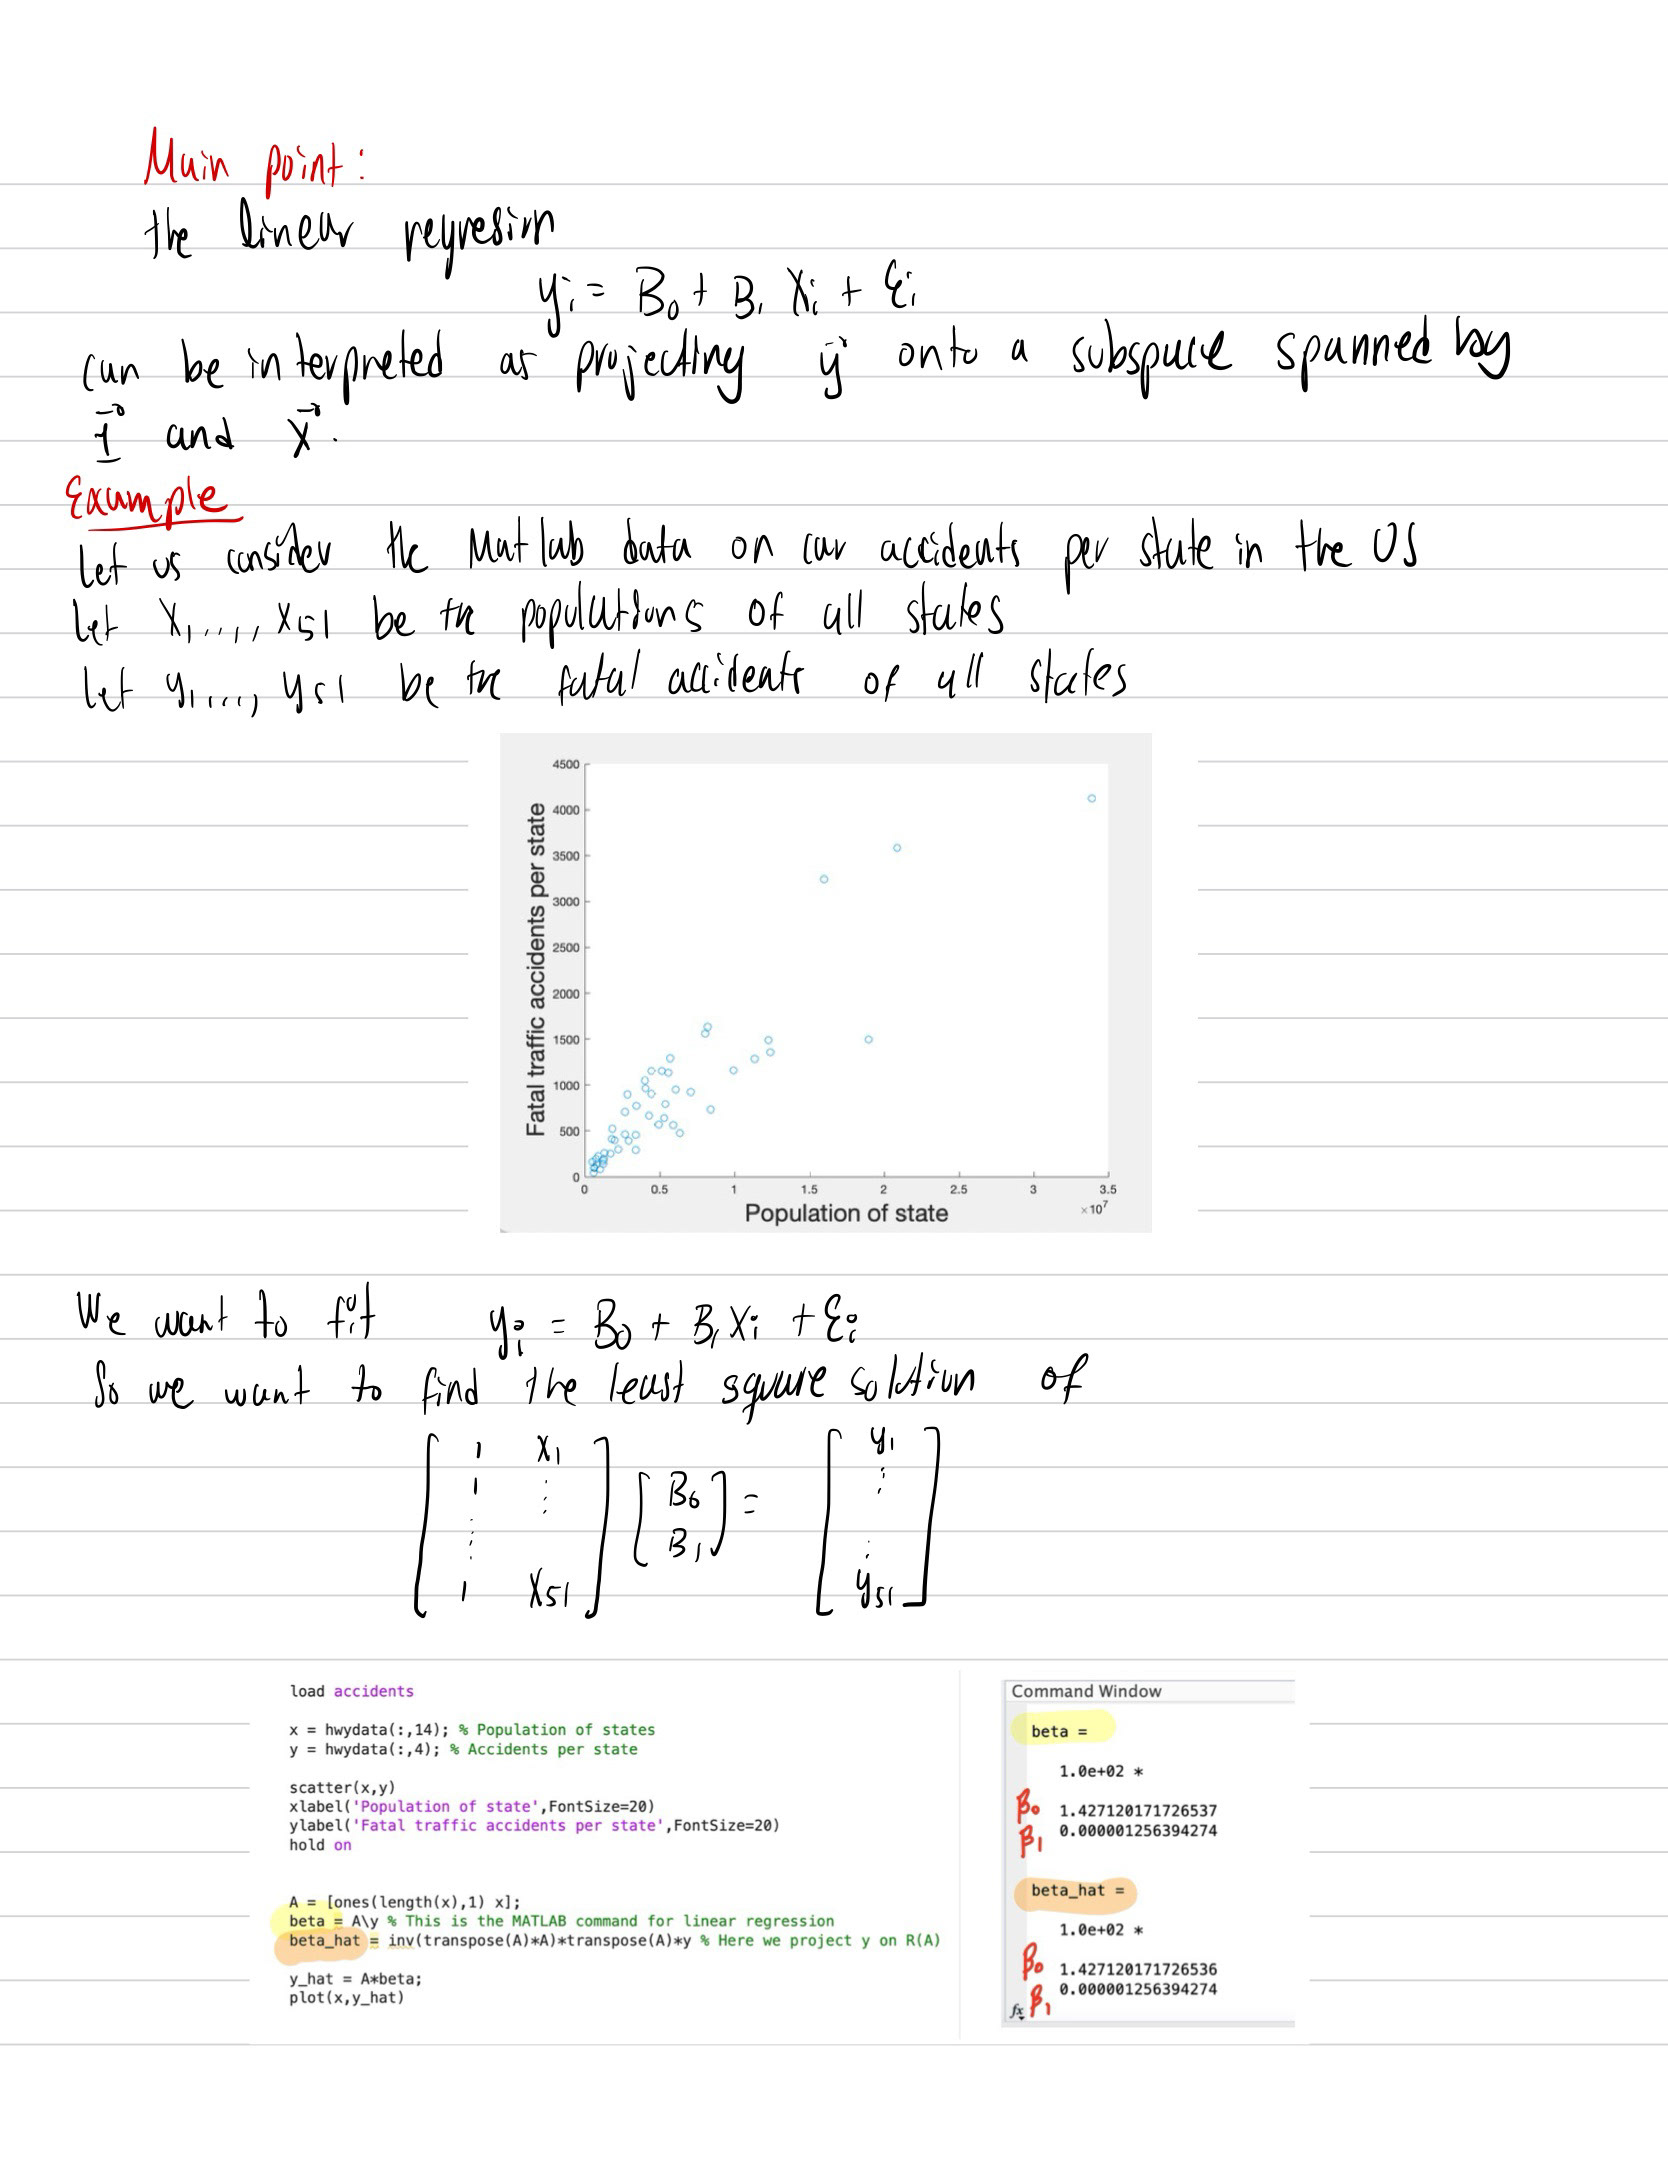 Main point:
the linear regresirn
yi = B0 + B1 Xi + Ei
can be interpreted as projecting y⃗ onto a subspace spanned by
1⃗ and x⃗.
Example
Let us consider the Matlab data on car accidents per state in the US
Let X1,...,X51 be the populations of all states
Let y1,...,y51 be the fatal accidents of all states
Fatal traffic accidents per state
4500
4000
3500
3000
2500
2000
1500
1000
500
0
0 0.5 1 1.5 2 2.5 3 3.5
Population of state ×10^7
We want to fit yi = B0 + B1Xi + Ei
So we want to find the least square solution of
[1 X1; 1 ⋮; ⋮; 1 X51] [B0; B1] = [y1; ⋮; y51]
load accidents
x = hwydata(:,14); % Population of states
y = hwydata(:,4); % Accidents per state
scatter(x,y)
xlabel('Population of state',FontSize=20)
ylabel('Fatal traffic accidents per state',FontSize=20)
hold on
A = [ones(length(x),1) x];
beta = A\y % This is the MATLAB command for linear regression
beta_hat = inv(transpose(A)*A)*transpose(A)*y % Here we project y on R(A)
y_hat = A*beta;
plot(x,y_hat)
Command Window
beta =
1.0e+02 *
β0 1.427120171726537
β1 0.000001256394274
beta_hat =
1.0e+02 *
β0 1.427120171726536
β1 0.000001256394274
fx